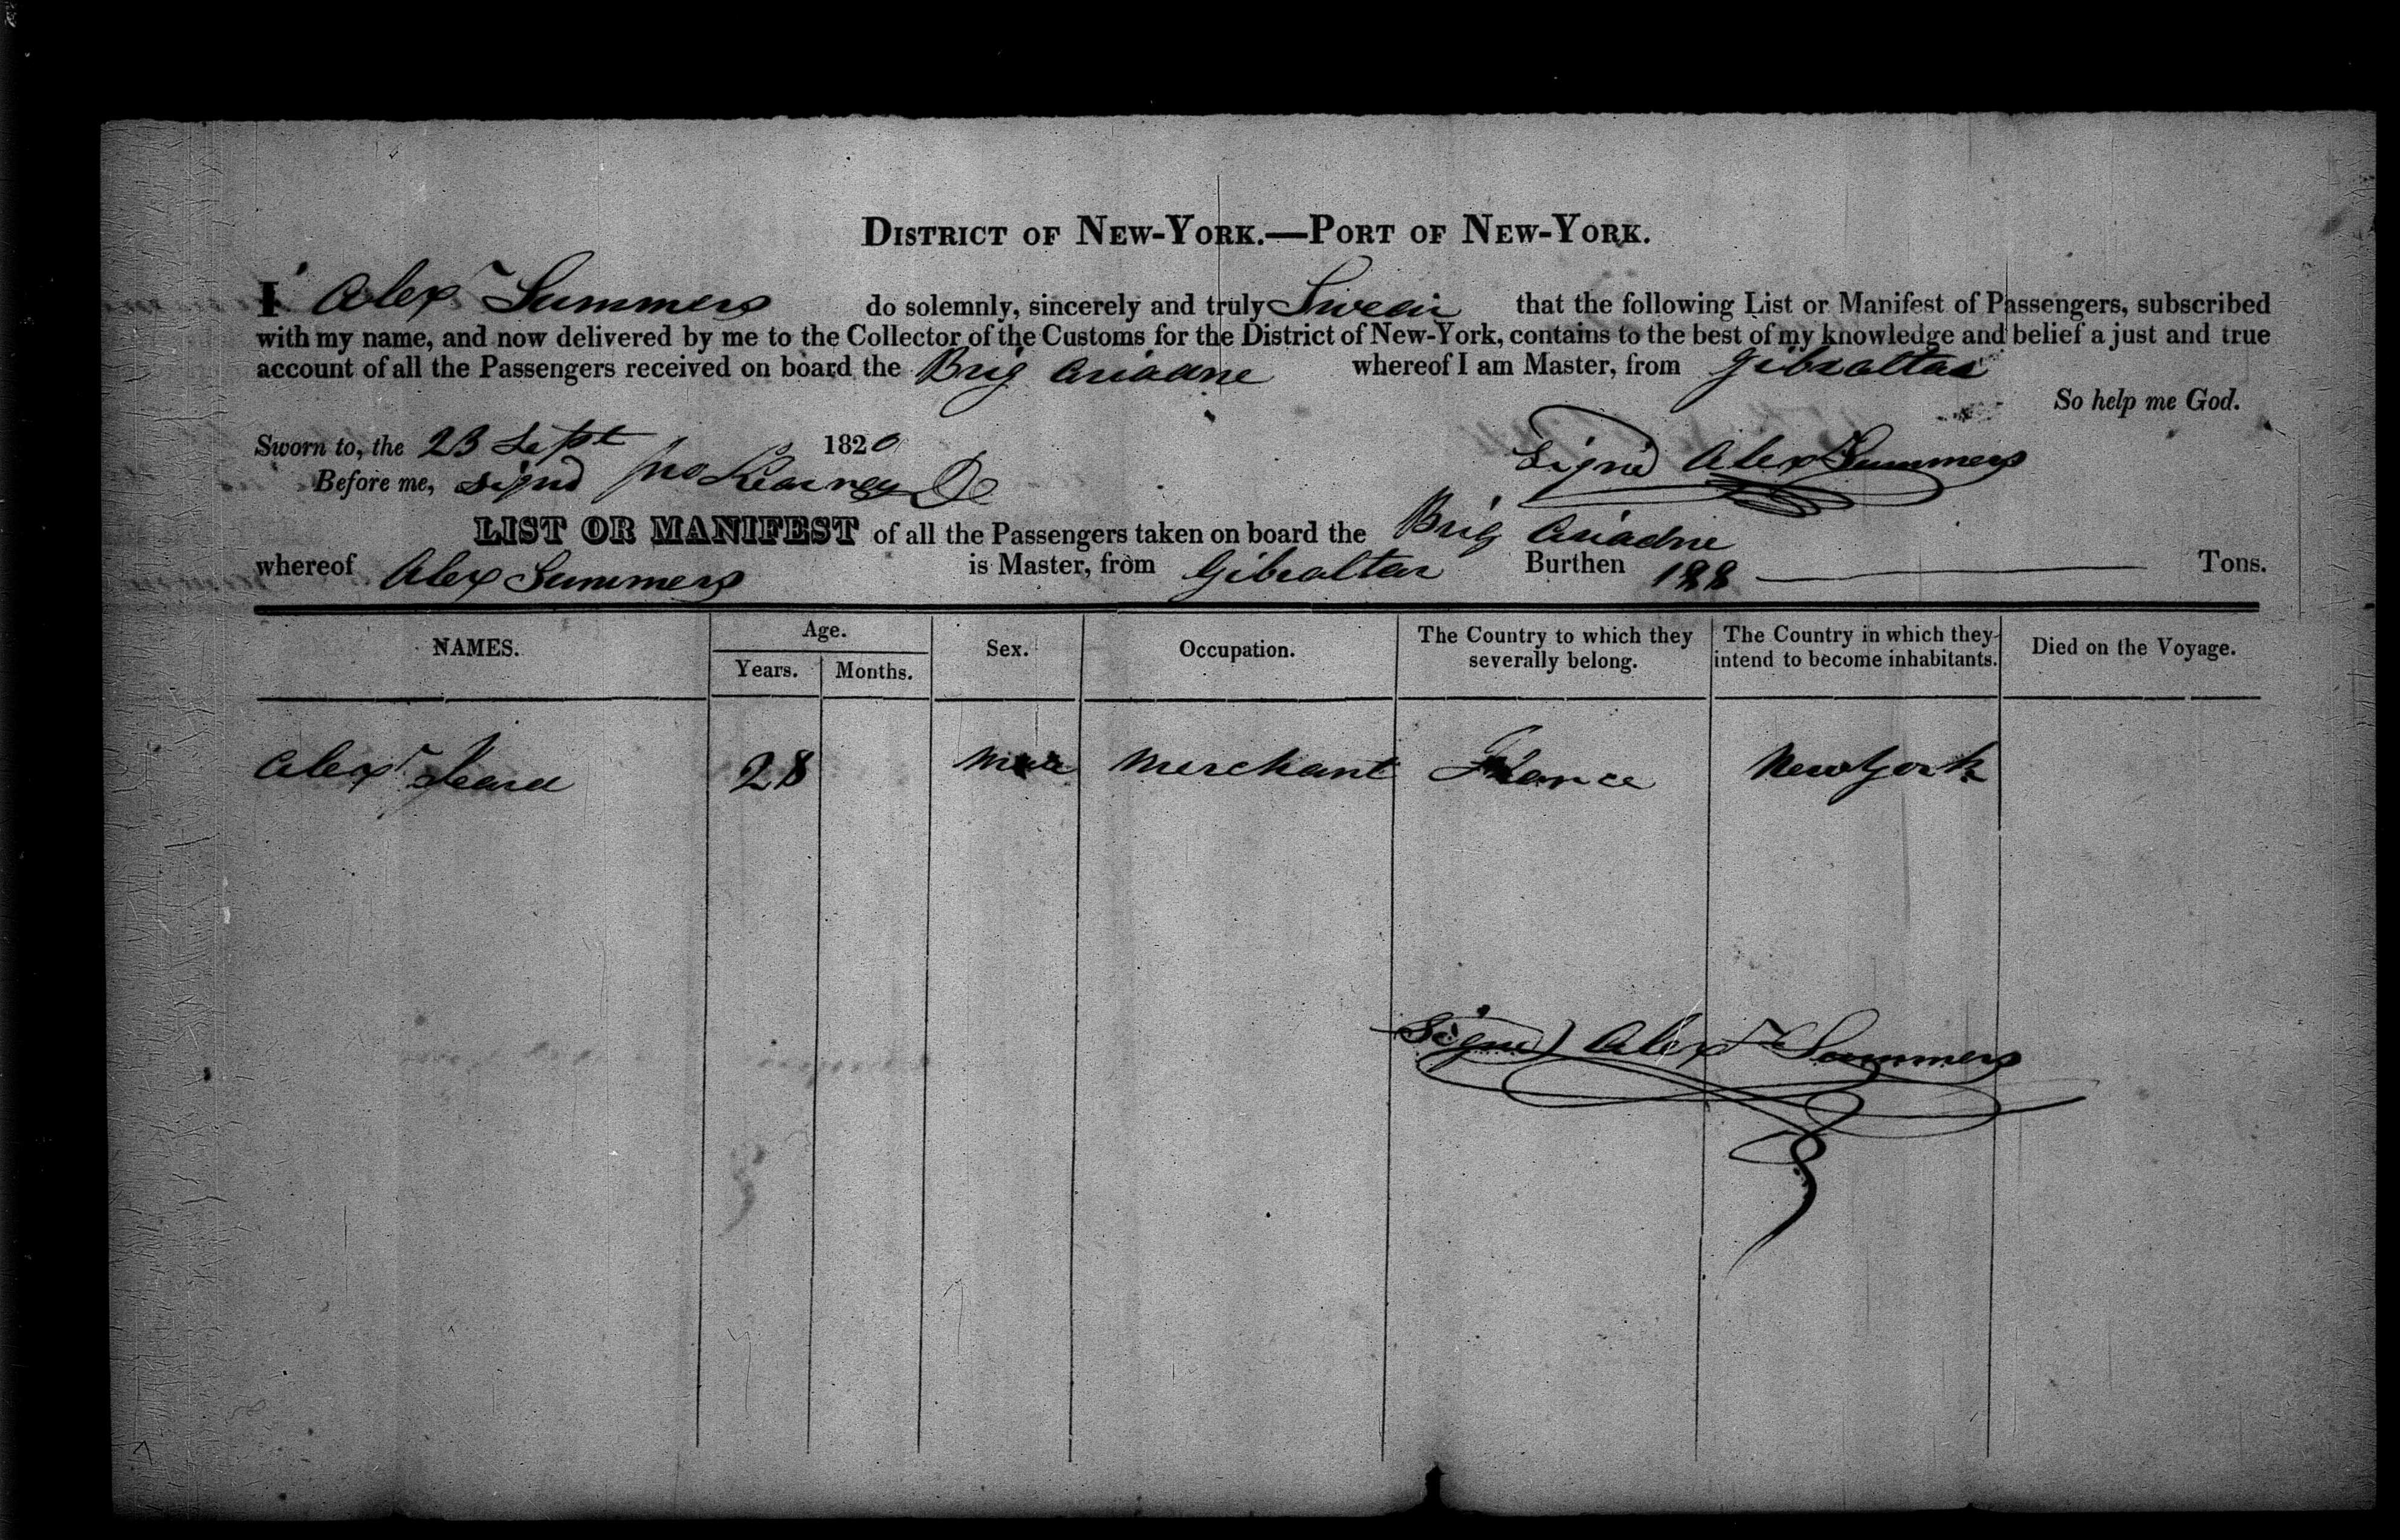 DISTRICT OF NEW-YORK.—PORT OF NEW-YORK.
I Alexr Summers do solemnly, sincerely and truly Swear that the following List or Manifest of Passengers, subscribed
with my name, and now delivered by me to the Collector of the Customs for the District of New-York, contains to the best of my knowledge and belief a just and true
account of all the Passengers received on board the Brig Ariadne whereof I am Master, from Gibraltar
So help me God.
Sworn to, the 23 Sept 1820 Signd Alexr Summers
Before me, signd Jno Kearney
LIST OR MANIFEST of all the Passengers taken on board the Brig Ariadne
whereof Alex Summers is Master, from Gibraltar Burthen 188 Tons.
NAMES. Age. Years. Months. Sex. Occupation. The Country to which they severally belong. The Country in which they intend to become inhabitants. Died on the Voyage.
Alexr 28 Male Merchant France New York
Signd Alexr Summers